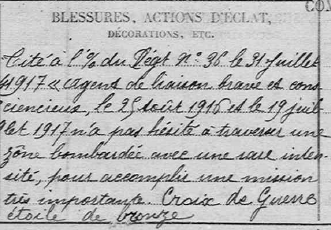 BLESSURES, ACTIONS D'ÉCLAT,
DÉCORATIONS, ETC.
Cité à l'% du Régt N° 36 le 31 juillet
1917 « agent de liaison brave et cons
ciencieux, le 25 août 1916 et le 19 juil
let 1917 n'a pas hésité à traverser une
zône bombardée avec une rare inten-
sité, pour accomplir une mission
très importante. Croix de Guerre
étoile de bronze